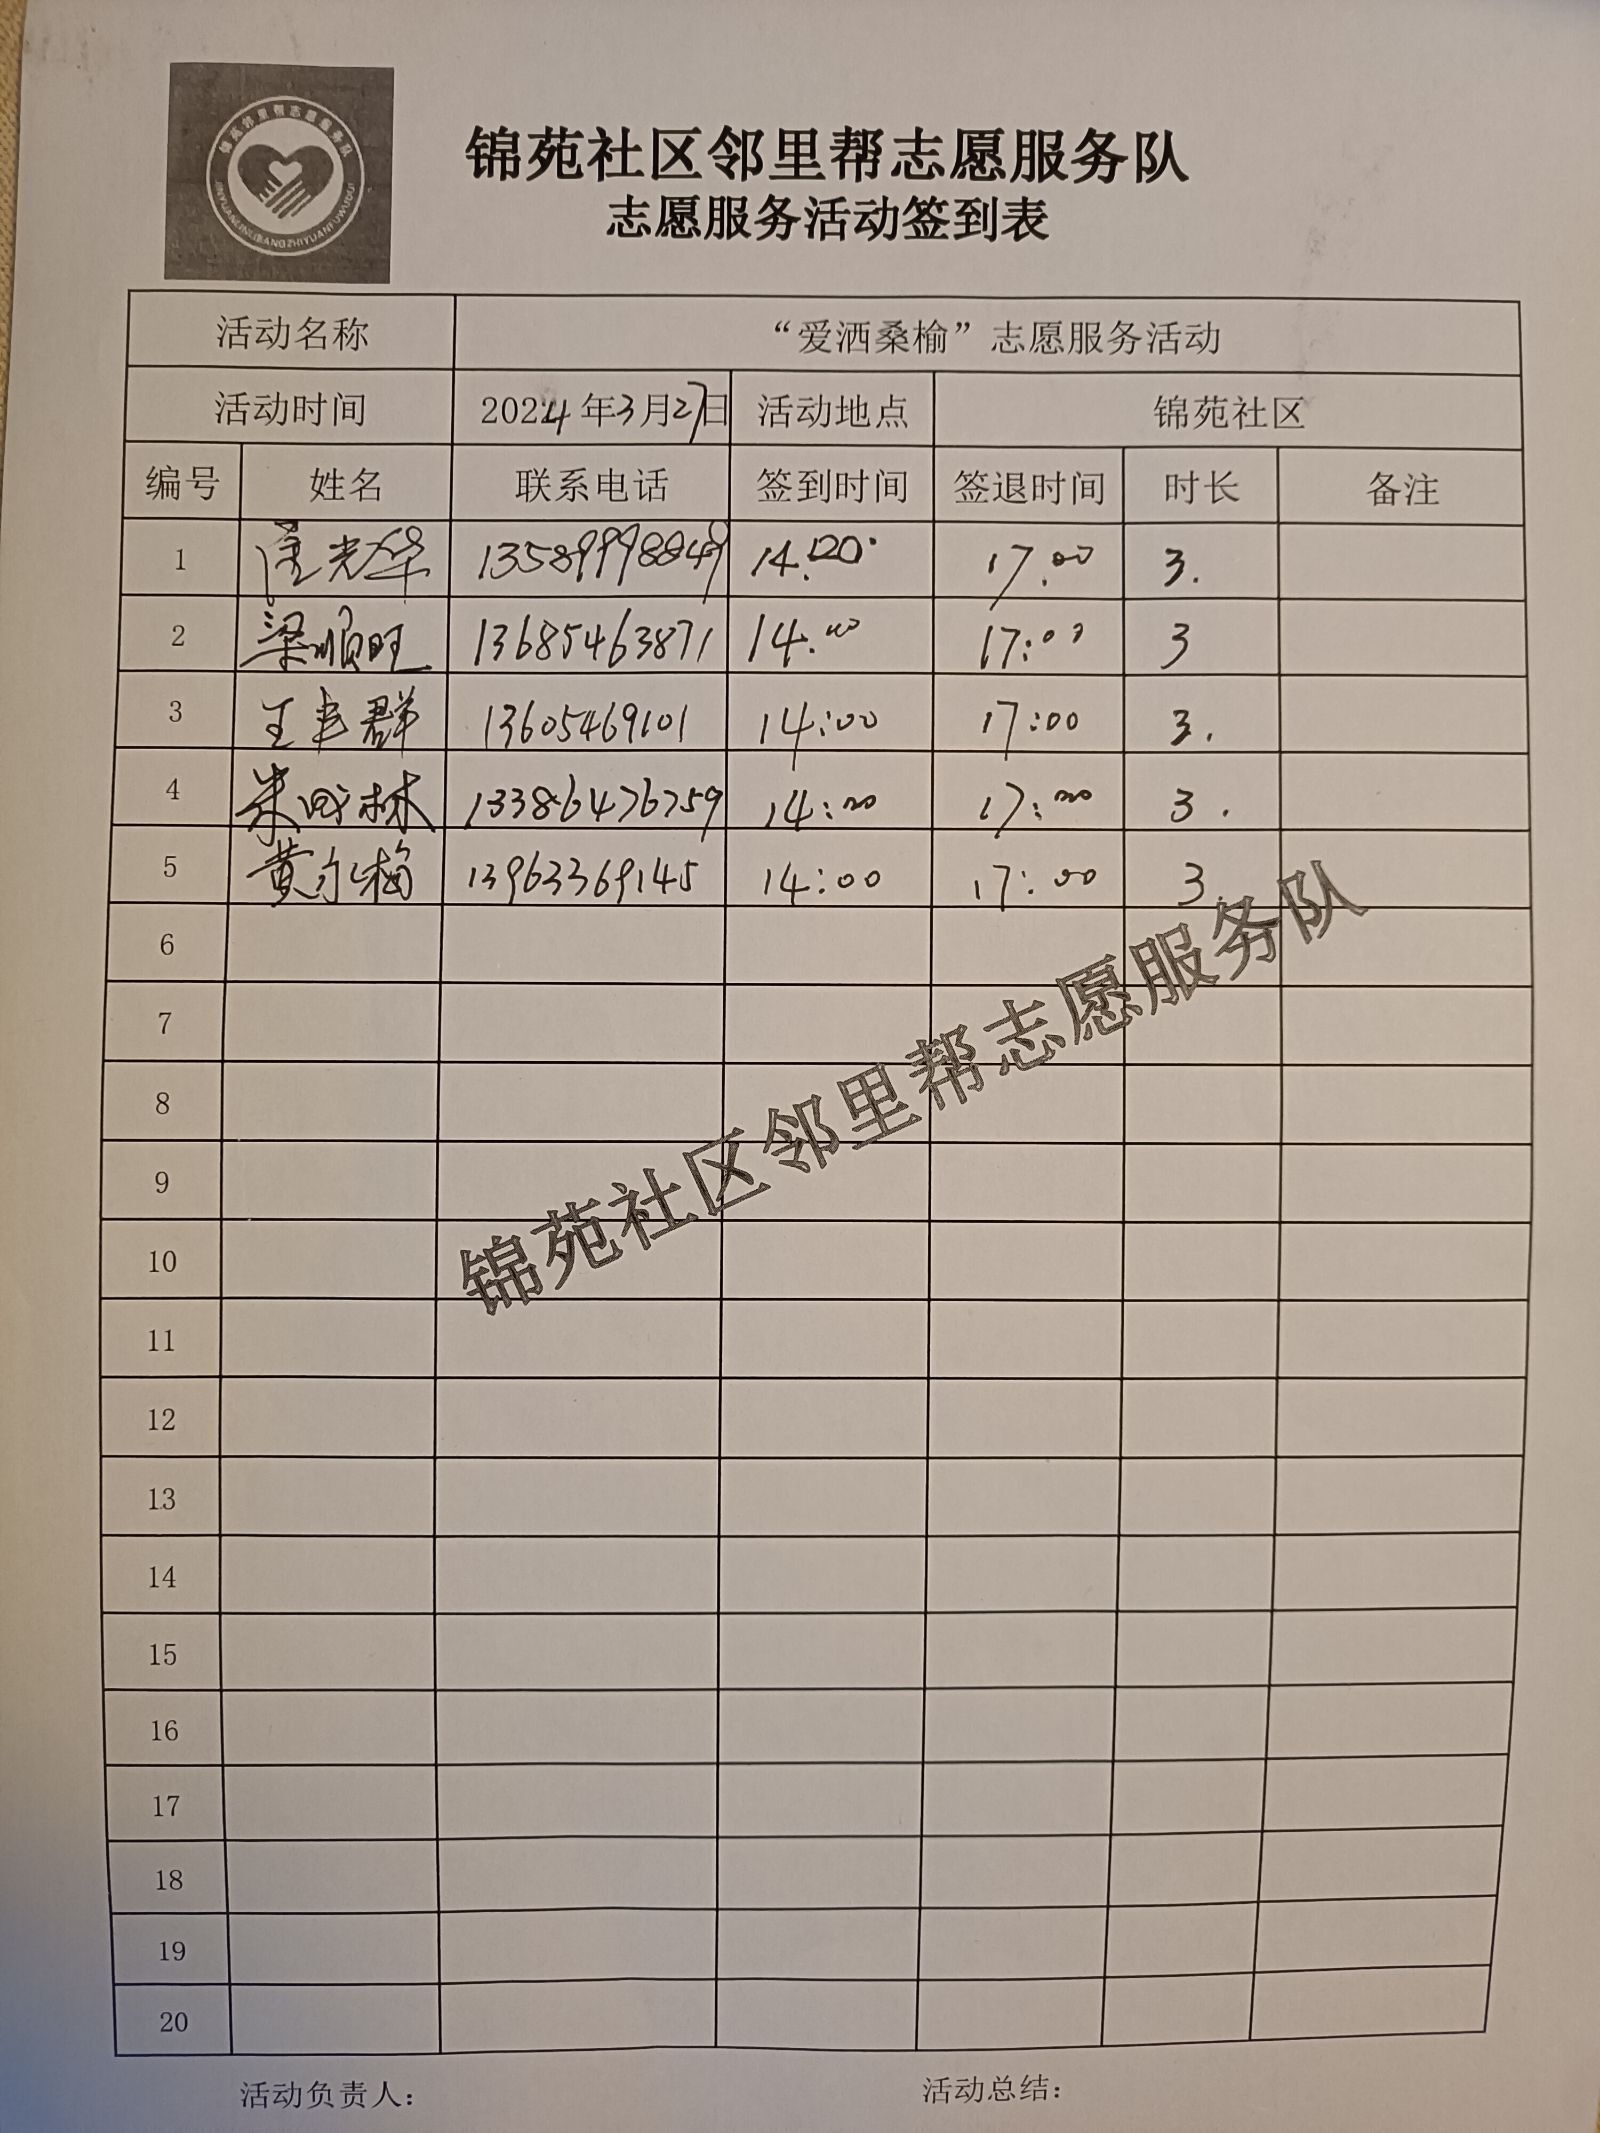 锦苑邻里帮志愿服务队
JINYUANLINLIBANGZHIYUANFUWUDUI
锦苑社区邻里帮志愿服务队
志愿服务活动签到表
活动名称 “爱洒桑榆”志愿服务活动
活动时间 2024年3月27日 活动地点 锦苑社区
编号 姓名 联系电话 签到时间 签退时间 时长 备注
1 光华 13589998849 17.00 3.
2 梁顺旺 13685463871 14:00 17:00 3
3 王丰群 13605469101 14:00 17:00 3.
4 朱成林 13386476759 14:00 17:00 3.
5 黄永梅 13963369145 14:00 17:00 3.
6
7
8
9
10
11
12
13
14
15
16
17
18
19
20
锦苑社区邻里帮志愿服务队
活动负责人： 活动总结：